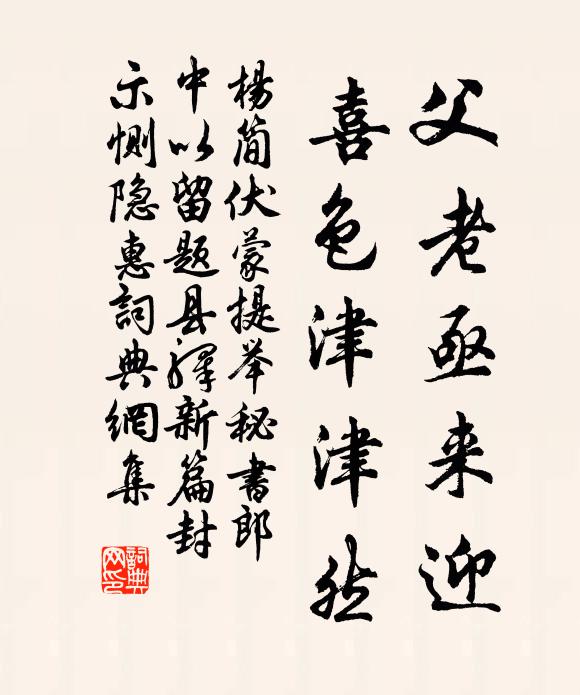 父老亟来迎
喜色津津然
杨简伏蒙提举秘书郎
中以留题县驿新篇封
示恻隐惠词典网集
词典网印